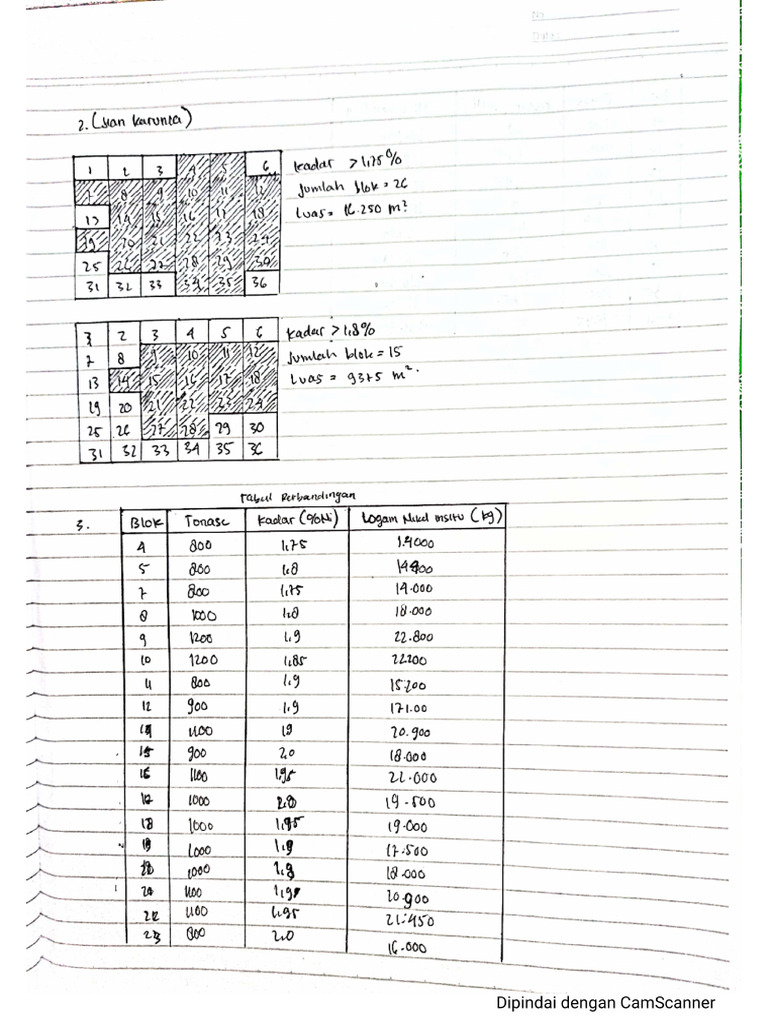 No
Date
2. (Jian Karunia)
1 2 3 4 5 6 Kadar > 1,75%
7 8 9 10 11 12 Jumlah blok = 26
13 14 15 16 17 18 Luas = 16.250 m²
19 20 21 22 23 24
25 26 27 28 29 30
31 32 33 34 35 36
2 3 4 5 6 Kadar > 1,8%
7 8 9 10 11 12 Jumlah blok = 15
13 14 15 16 17 18 Luas = 9375 m².
19 20 21 22 23 24
25 26 27 28 29 30
31 32 33 34 35 36
Tabel Perbandingan
3. Blok Tonase Kadar (%Ni) Logam Nikel insitu (kg)
4 800 1,75 14000
5 800 1,8 14400
7 800 1,75 14.000
8 1000 1,8 18.000
9 1200 1,9 22.800
10 1200 1,85 22200
11 800 1,9 15.200
12 900 1,9 171.00
14 1100 19 20.900
15 900 2,0 18.000
16 1100 1,95 22.000
17 1000 2.0 19.500
18 1000 1,95 19.000
19 1000 1,9 17.500
20 1000 1,8 18.000
1100 20.900
22 1100 1,95 21.450
23 800 2,0 16.000
Dipindai dengan CamScanner